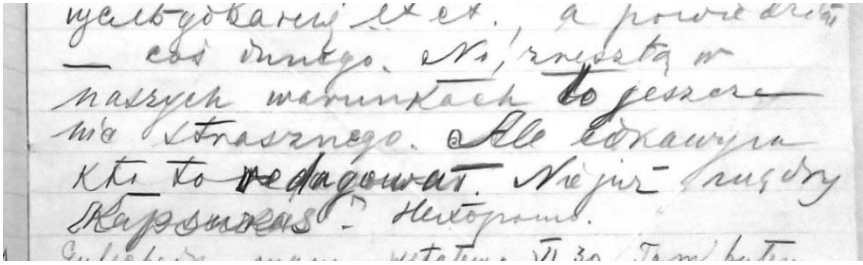 et ct., a powiedział
— coś innego. No, zresztą w
naszych warunkach to jeszcze
nic strasznego. Ale ciekawym
kto to redagował. Niejuż mądry
Kapsukas? Нехорошо.